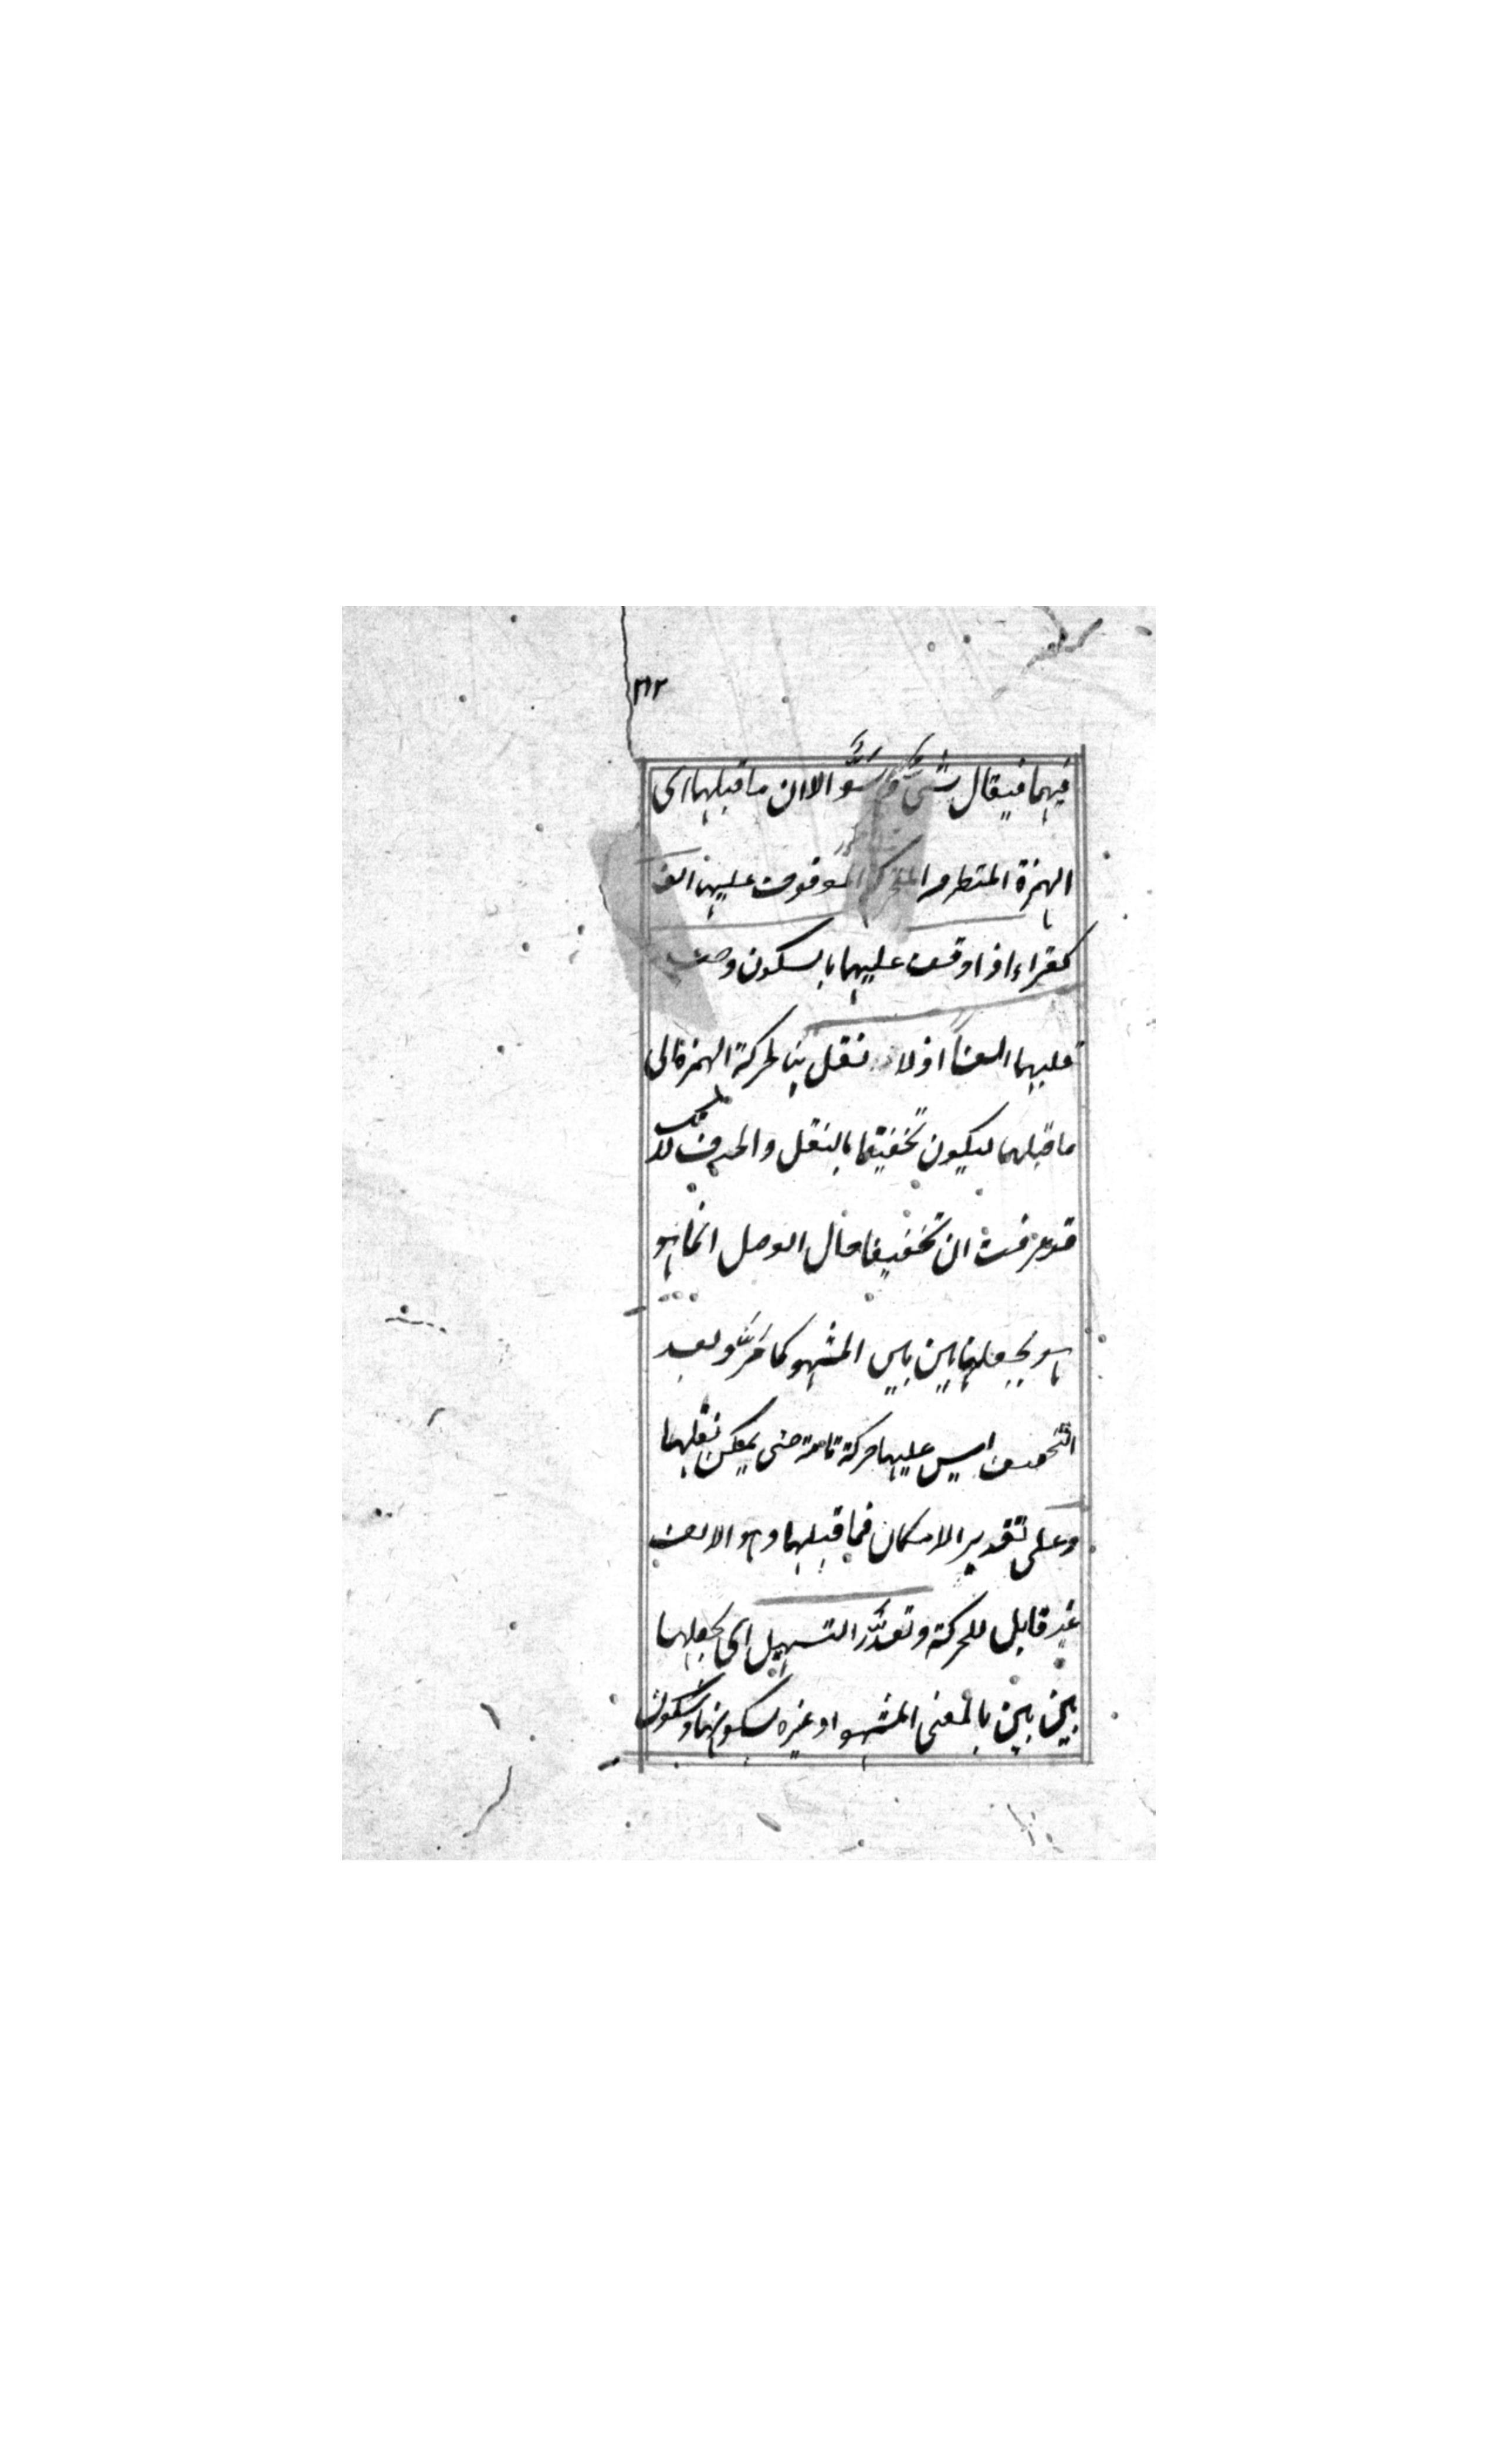 ٣١٢
فيهما فيقال شيّ وسوّ الا ان ما قبلها اى
الهمزة المتطرفة المتحركة الموقوف عليها الف
كقراء اذا وقف عليها بالسكون وجب
قلبها الفاً اذ لا نقل هنا لحركة الهمزة الى
ما قبلها ليكون تخفيفها بالنقل والحذف لانك
قد عرفت ان تخفيفها حال الوصل انما هو
هو بجعلها بين بين المشهور كما مرّ وبعد
التخفيف ليس عليها حركة تامة حتى يمكن نقلها
وعلى تقدير الامكان فما قبلها وهو الالف
غير قابل للحركة وتعذّر التسهيل اى بجعلها
بين بين بالمعنى المشهور او غيره لسكونها وسكون